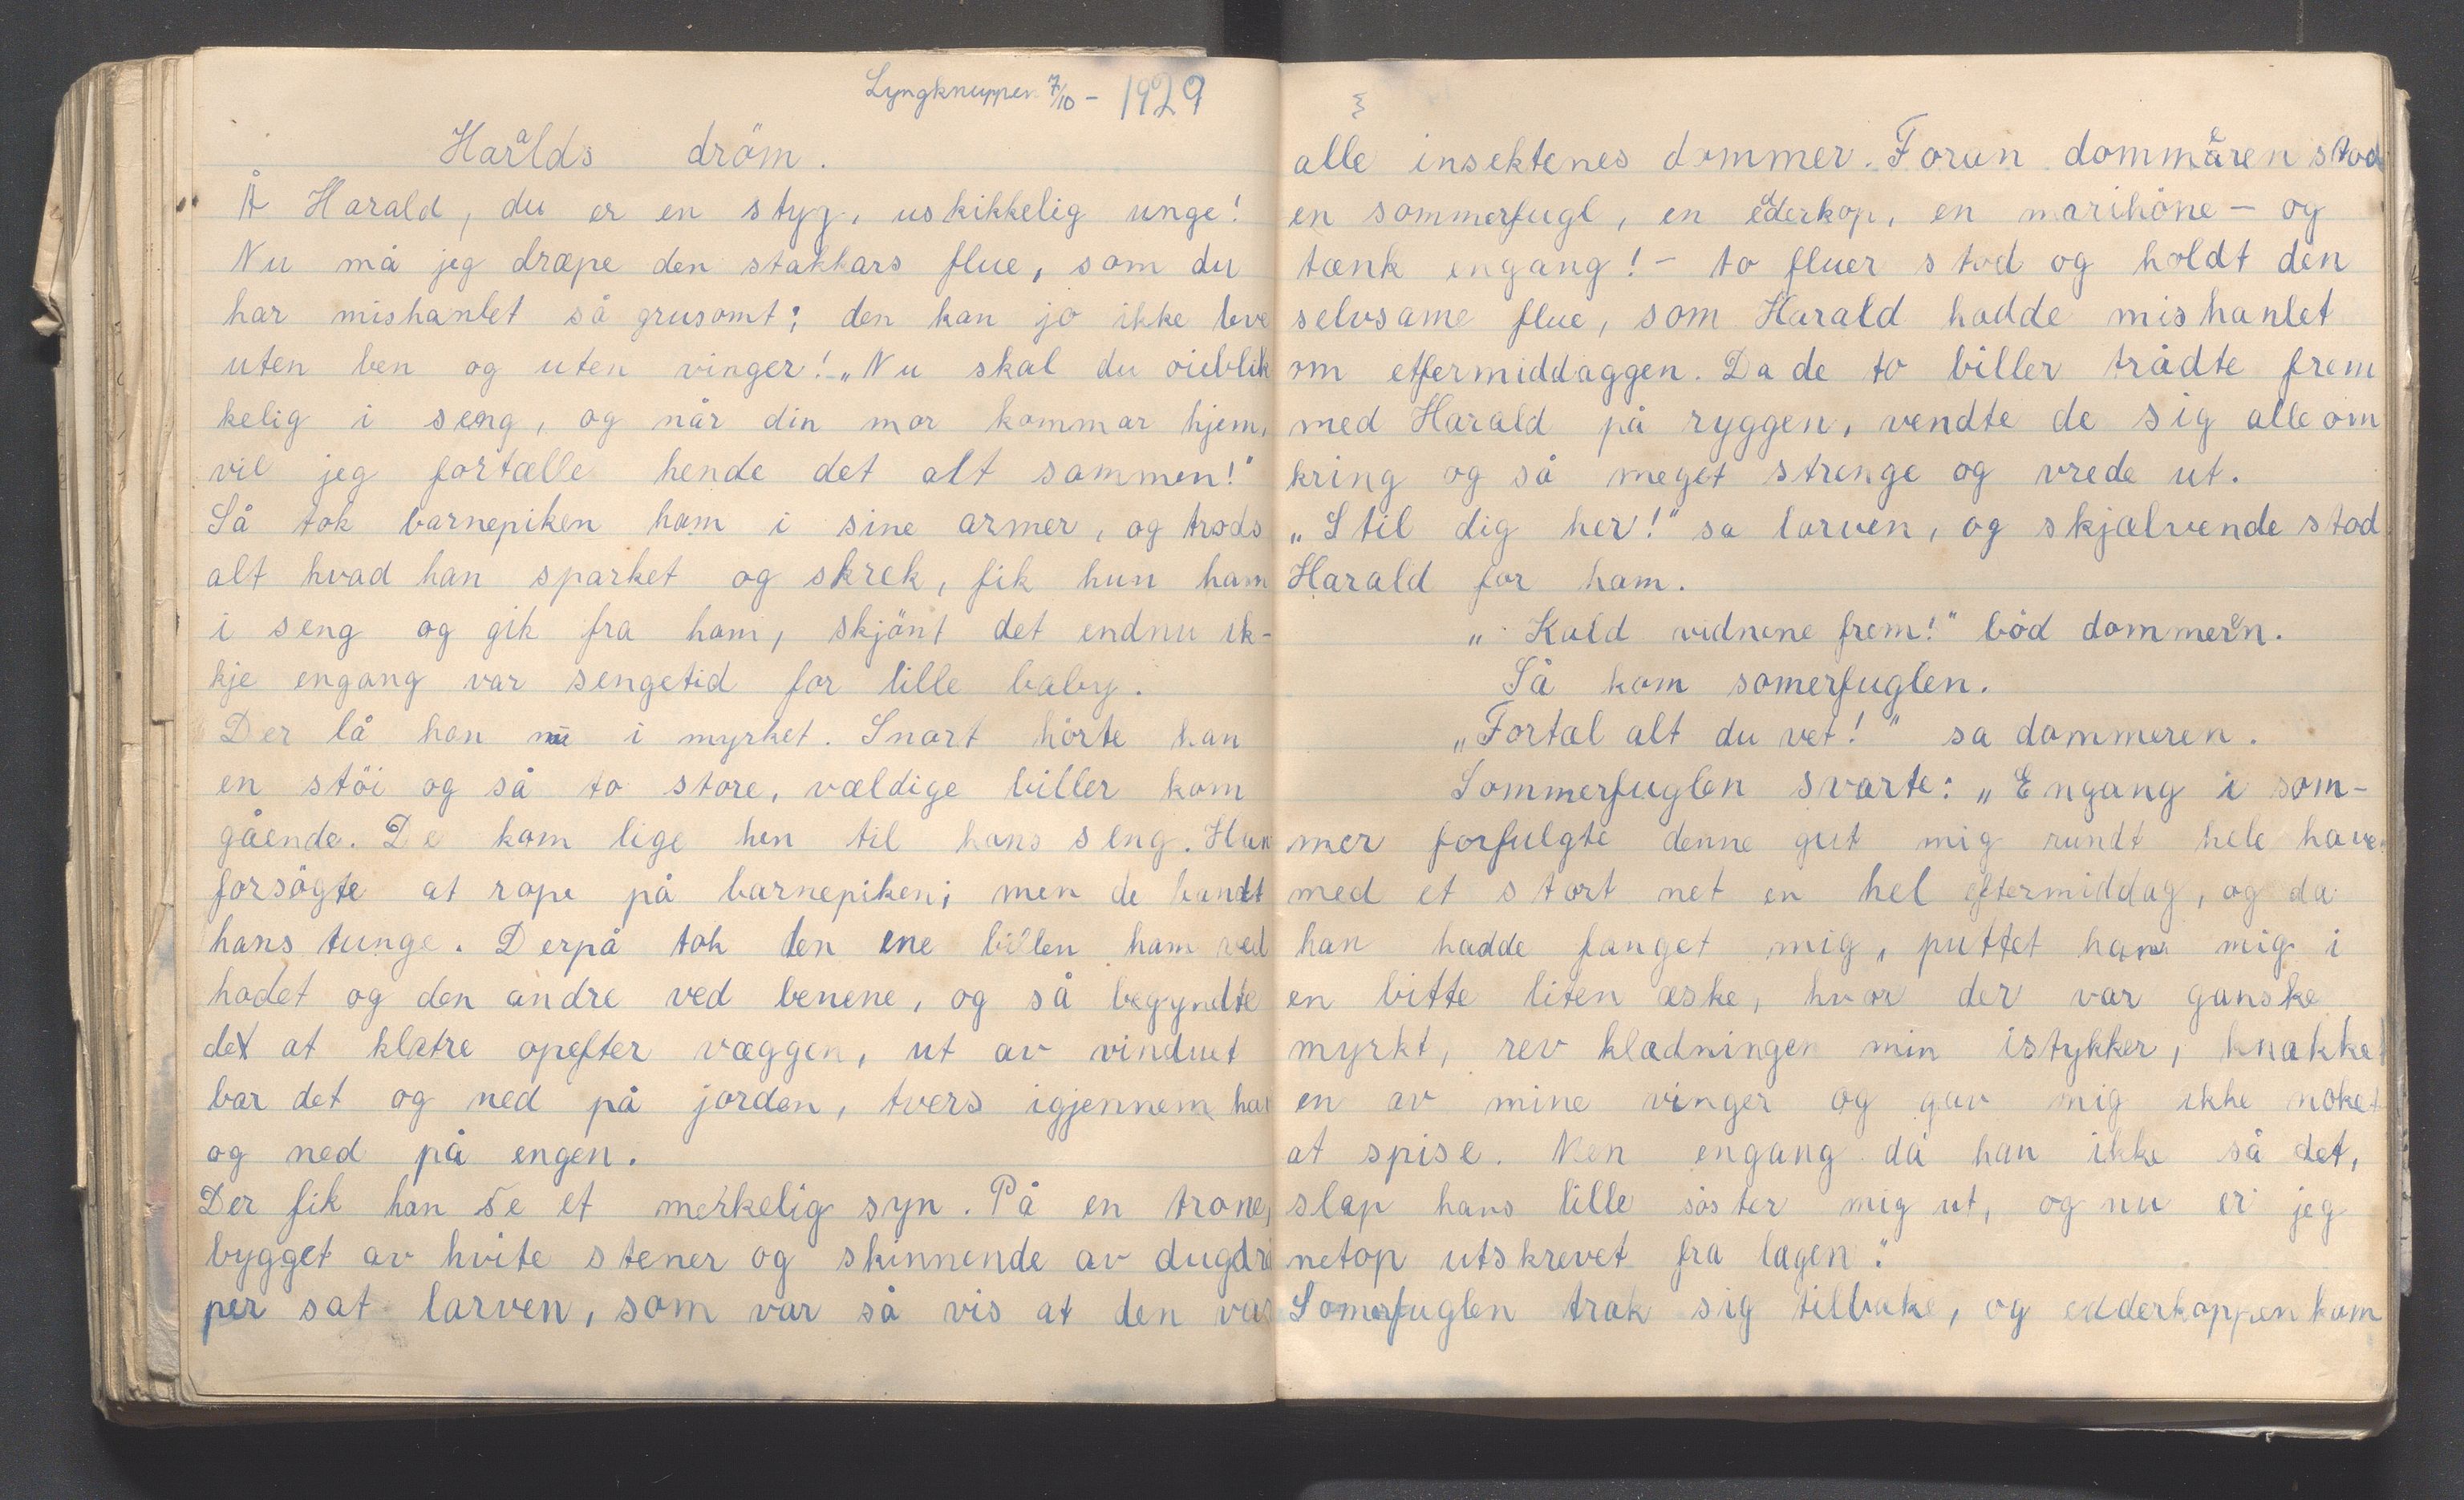 Lyngknuppen 7/10 - 1929
Haralds dröm.
Å Harald, du er en styg, uskikkelig unge!
Nu må jeg dræpe den stakkars flue, som du
har mishanlet så grusomt; den kan jo ikke leve
uten ben og uten vinger! „Nu skal du oieblik
kelig i seng, og når din mor kommar hjem,
vil jeg fortælle hende det alt sammen!"
Så tok barnepiken ham i sine armer, og trods
alt hvad han sparket og skrek, fik hun ham
i seng og gik fra ham, skjönt det endnu ik-
kje engang var sengetid for lille baby.
Der lå han nu i myrket. Snart hörte han
en stöi og så to store, vældige biller kom
gående. De kom lige hen til hans seng. Han
forsögte at rope på barnepiken; men de bandt
hans tunge. Derpå tok den ene billen ham ved
hodet og den andre ved benene, og så begyndte
det at klatre opefter væggen, ut av vinduet
bar det og ned på jorden, tvers igjennem ha
og ned på engen.
Der fik han se et merkelig syn. På en trone,
bygget av hvite stener og skinnende av dugdrå
per sat larven, som var så vis at den var
alle insektenes dommer. Foran dommeren stod
en sommerfugl, en ederkop, en marihöne - og
tænk engang! - to fluer stod og holdt den
selvsame flue, som Harald hadde mishanlet
om eftermiddaggen. Da de to biller trådte frem
med Harald på ryggen, vendte de sig alle om
kring og så meget strenge og vrede ut.
„Stil dig her!" sa larven, og skjælvende stod
Harald for ham.
„Kald vidnene frem!" böd dommeren.
Så kom somerfuglen.
„Fortæl alt du vet!" sa dommeren.
Sommerfuglen svarte: „Engang i som-
mer forfulgte denne gut mig rundt hele haven
med et stort net en hel eftermiddag, og da
han hadde fanget mig, puttet han mig i
en bitte liten æske, hvor der var ganske
myrkt, rev klædningen min istykker, knakket
en av mine vinger og gav mig ikke noket
at spise. Men engang da han ikke så det,
slap hans lille söster mig ut, og nu er jeg
netop utskrevet fra lægen."
Somerfuglen trak sig tilbake, og edderkoppen kom